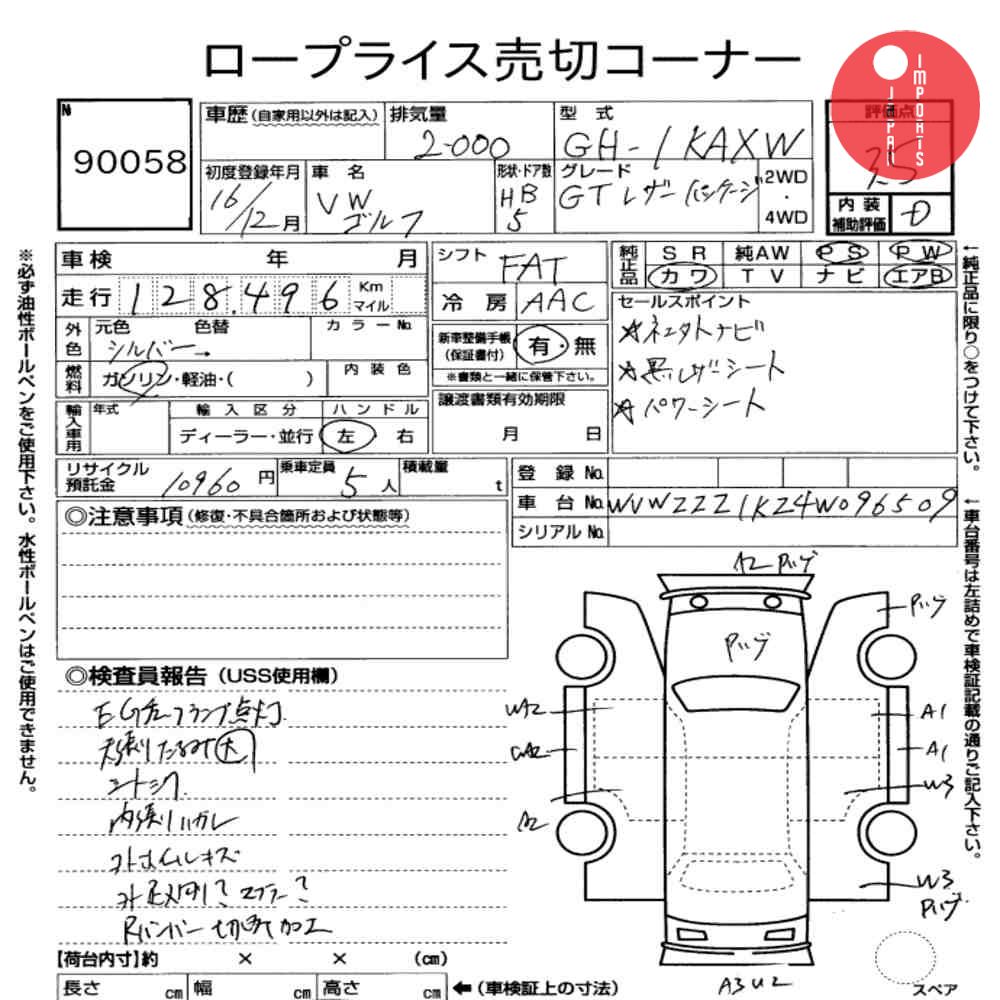 ロープライス売切コーナー
JAPAN IMPORTS
No
90058
車歴(自家用以外は記入)
排気量
2000
型 式
GH-1KAXW
評価点
3.5
初度登録年月
16/12月
車 名
VW
ゴルフ
形状・ドア数
HB
5
グレード
GTレザーパッケージ
2WD
・
4WD
内 装
補助評価
D
車 検 年 月
シフト
FAT
純正品
SR 純AW PS PW
カワ TV ナビ エアB
走行 128,496 Km
マイル
冷 房 AAC
セールスポイント
外色
元色 色替
シルバー→
カラーNo.
新車整備手帳
(保証書付)
有・無
※書類と一緒に保管下さい。
☆黒レザーシート
☆パワーシート
燃料
ガソリン・軽油・( )
内 装 色
輸入車用
年式
輸 入 区 分
ハ ン ド ル
ディーラー・並行
左・右
譲渡書類有効期限
月 日
リサイクル
預託金
10960円
乗車定員
5人
積載量
t
登 録 No.
車 台 No. WVWZZZ1KZ4W096509
シリアル No.
◎注意事項(修復・不具合箇所および状態等)
◎検査員報告(USS使用欄)
天張りたるみ大
内張りハガレ
A2
W3
A1
A1
W3
A2
【荷台内寸】約 × × (cm)
長さ cm 幅 cm 高さ cm
←(車検証上の寸法)
スペア
※必ず油性ボールペンをご使用下さい。水性ボールペンはご使用できません。
←純正品に限り○をつけて下さい。
←車台番号は左詰めで車検証記載の通りご記入下さい。